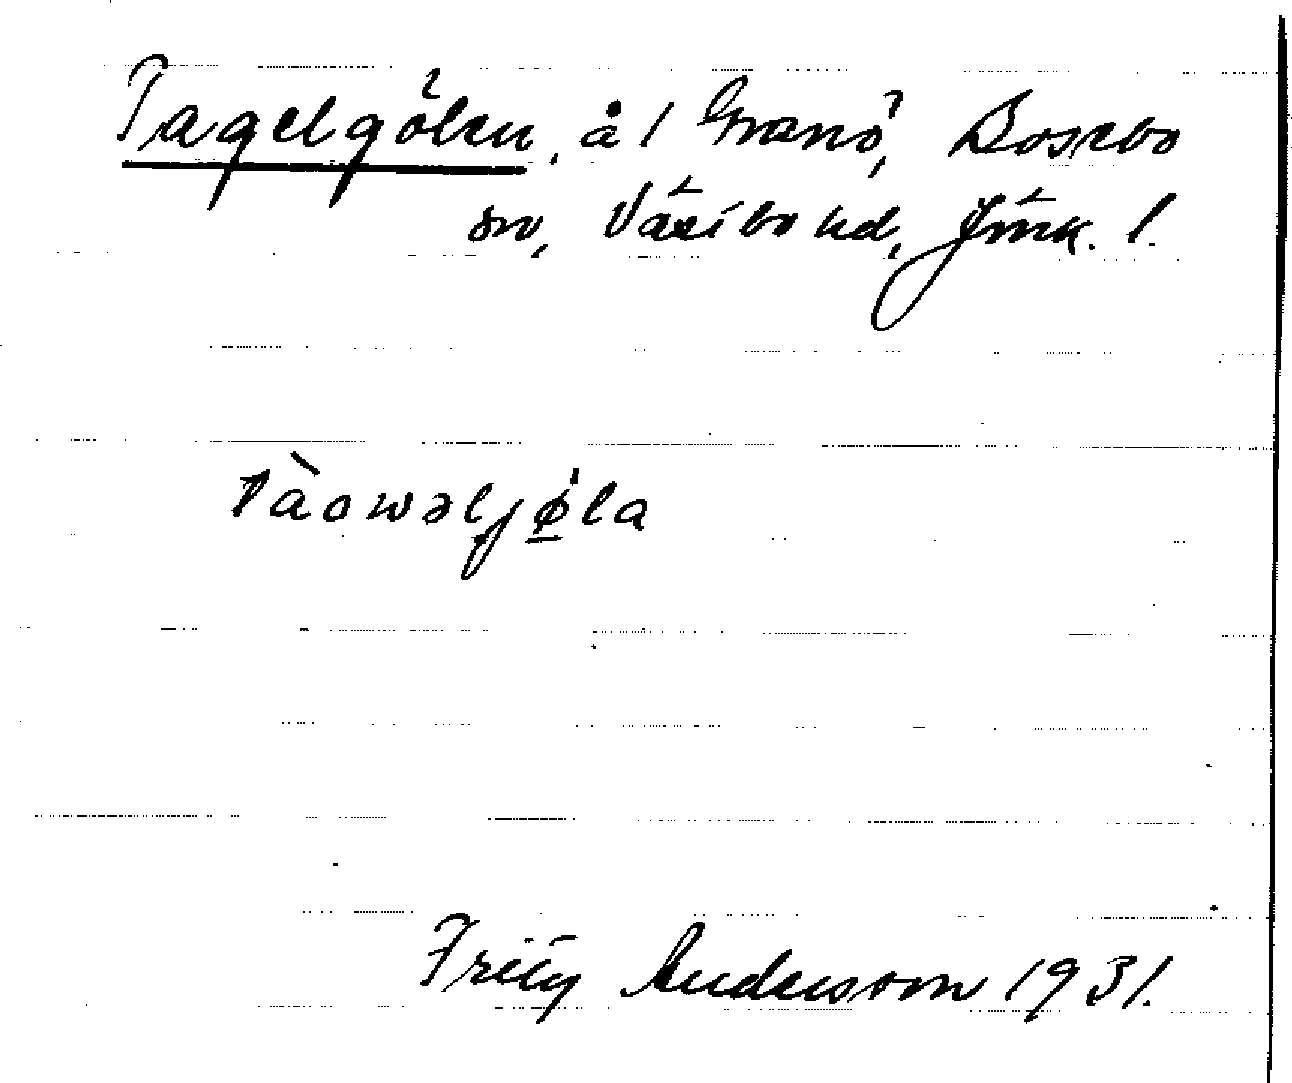 Tagelgölen, å 1 Granö, Bosebo
sn, Västbo hd, Jönk. l.
tàowəljø̱la
Fritz Andersson 1931.